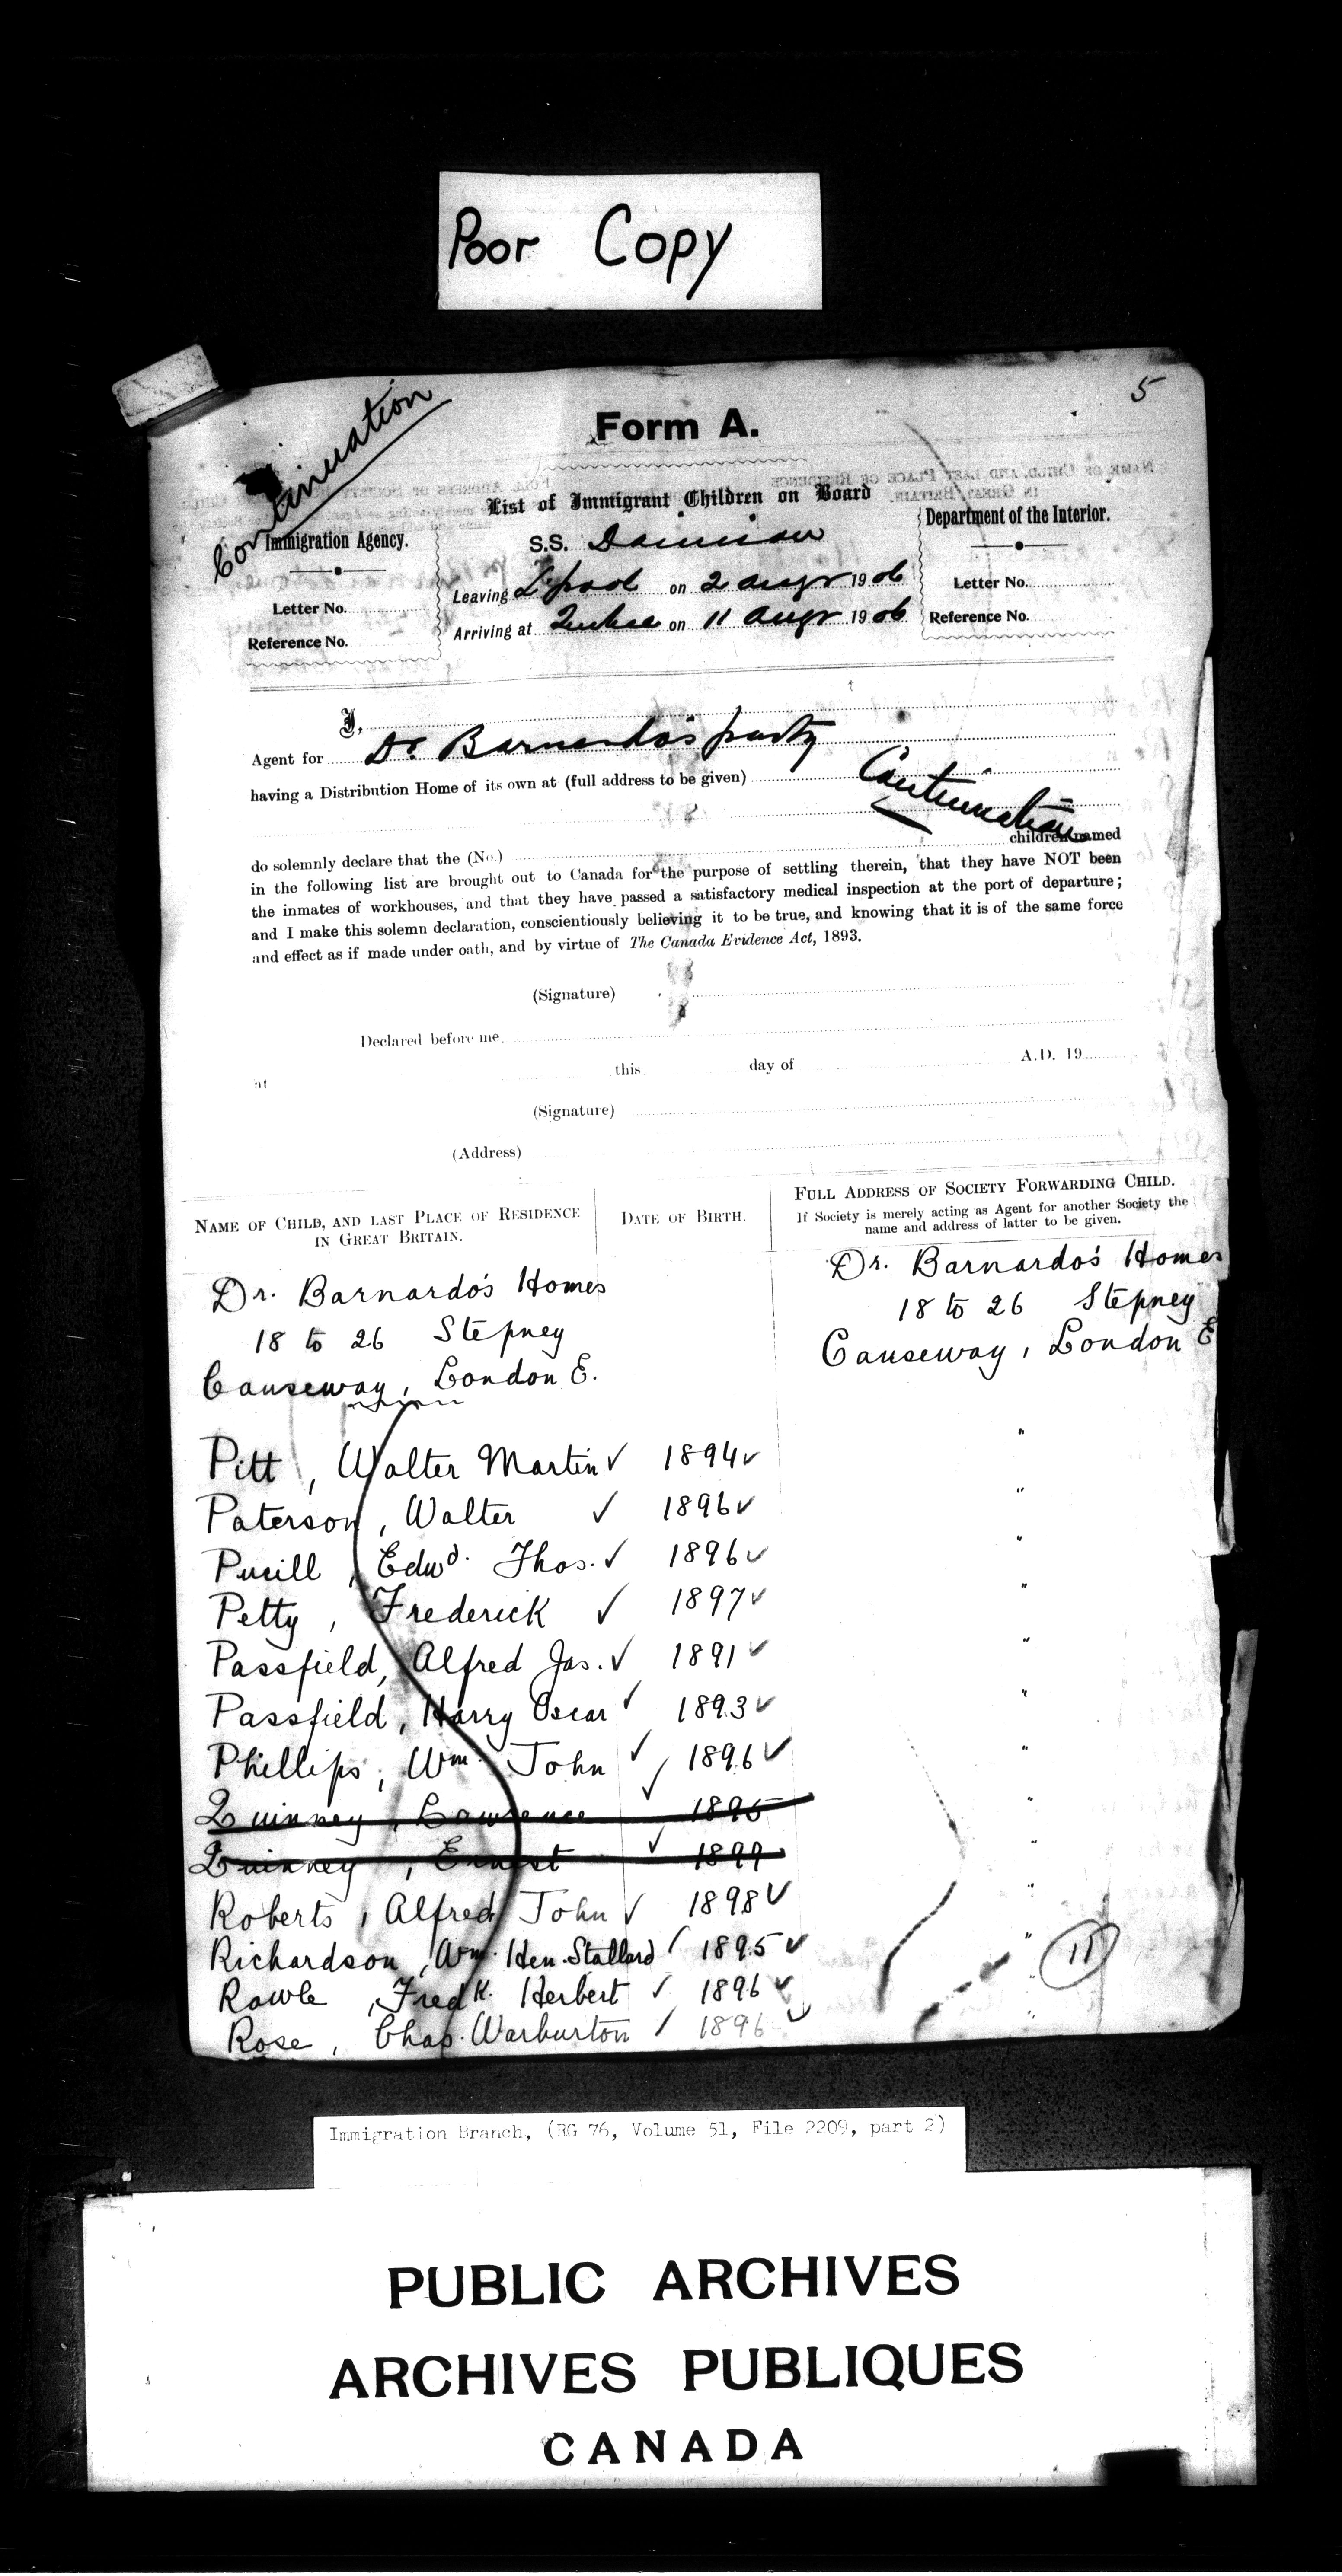 Poor Copy
5
Continuation
Form A.
List of Immigrant Children on Board
Immigration Agency.
Department of the Interior.
S.S. Dominion
Leaving L'pool on 2 Augr 1906
Letter No.
Letter No.
Arriving at Quebec on 11 Augr 1906
Reference No.
Reference No.
I,
Agent for Dr Barnardo's party
having a Distribution Home of its own at (full address to be given)
Continuation
do solemnly declare that the (No.) children named
in the following list are brought out to Canada for the purpose of settling therein, that they have NOT been
the inmates of workhouses, and that they have passed a satisfactory medical inspection at the port of departure;
and I make this solemn declaration, conscientiously believing it to be true, and knowing that it is of the same force
and effect as if made under oath, and by virtue of The Canada Evidence Act, 1893.
(Signature)
Declared before me
at this day of A.D. 19
(Signature)
(Address)
NAME OF CHILD, AND LAST PLACE OF RESIDENCE
IN GREAT BRITAIN.
DATE OF BIRTH.
FULL ADDRESS OF SOCIETY FORWARDING CHILD.
If Society is merely acting as Agent for another Society the
name and address of latter to be given.
Dr. Barnardo's Homes
18 to 26 Stepney
Causeway, London E.
Dr. Barnardo's Homes
18 to 26 Stepney
Causeway, London E
Pitt, Walter Martin ✓ 1894 ✓ "
Paterson, Walter ✓ 1896 ✓ "
Pucill, Edwd. Thos. ✓ 1896 ✓ "
Petty, Frederick ✓ 1897 ✓ "
Passfield, Alfred Jas. ✓ 1891 ✓ "
Passfield, Harry Oscar ✓ 1893 ✓ "
Phillips, Wm. John ✓ 1896 ✓ "
Quinney, Lawrence ✓ 1896 "
Quinney, Ernest ✓ 1899 "
Roberts, Alfred John ✓ 1898 ✓ "
Richardson, Wm. Hen. Stallard ✓ 1895 ✓ "
11
Rowle, Fredk. Herbert ✓ 1896 ✓ "
Rose, Chas. Warburton ✓ 1896 ✓ "
Immigration Branch, (RG 76, Volume 51, File 2209, part 2)
PUBLIC ARCHIVES
ARCHIVES PUBLIQUES
CANADA